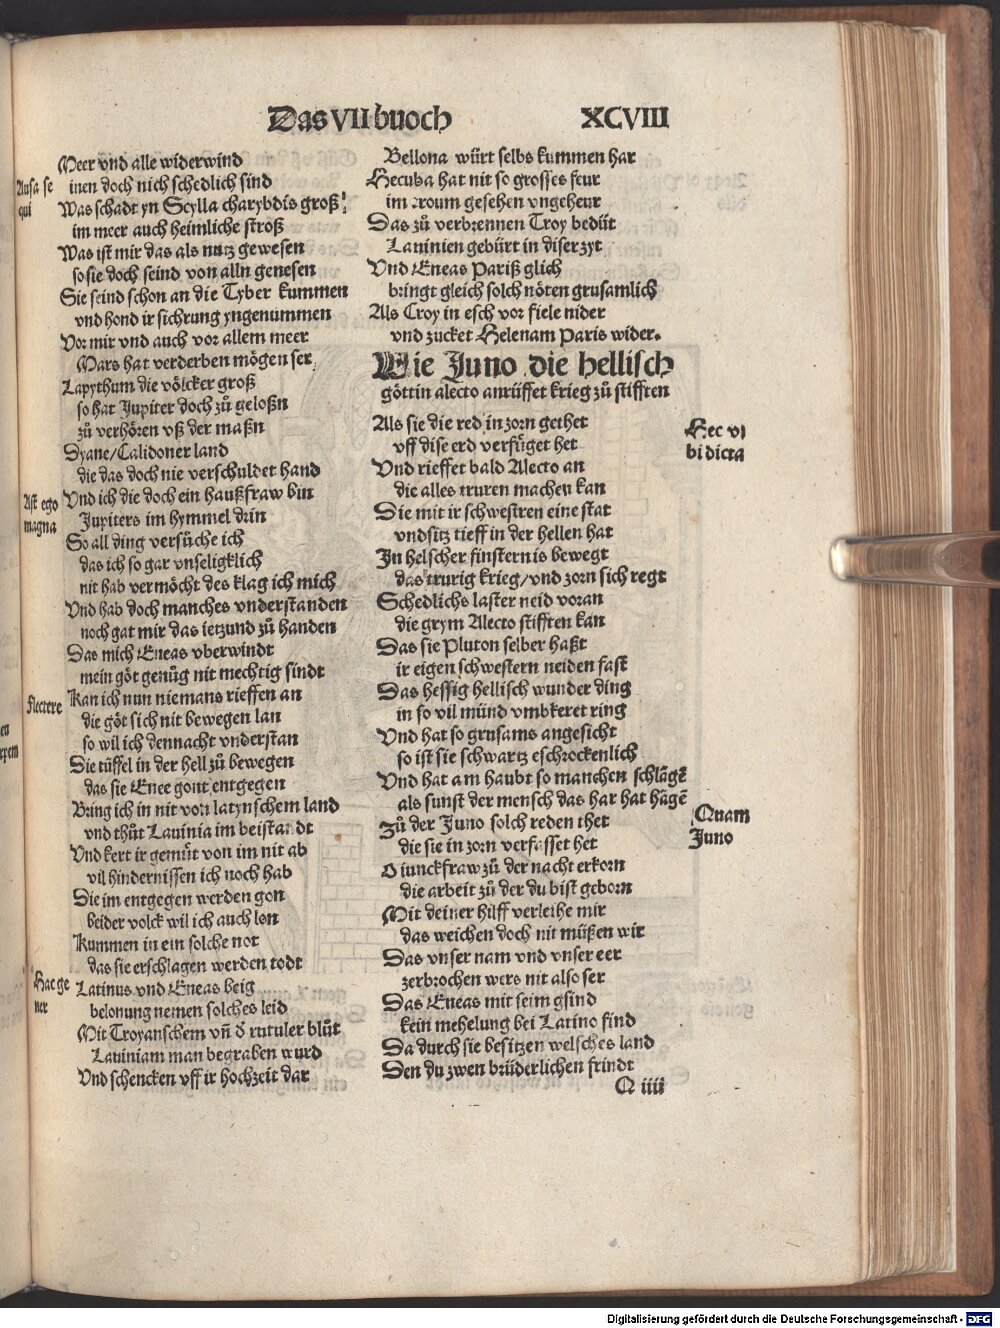 Das VII buoch XCVIII
Meer vnd alle widerwind
inen doch nich schedlich sind
Was schadt yn Scylla charybdis groß
im meer auch heimliche ströß
Was ist mir das als nutz gewesen
so sie doch seind von alln genesen
Sie seind schon an die Tyber kummen
vnd hond ir sichrung yngenummen
Vor mir vnd auch vor allem meer
Mars hat verderben mögen ser
Lapythum die völcker groß
so hat Jupiter doch zů geloßn
zů verhören vß der maßn
Dyane/Calidoner land
die das doch nie verschuldet hand
Vnd ich die doch ein haußfraw bin
Jupiters im hymmel drin
So all ding versůche ich
das ich so gar vnseligklich
nit hab vermöcht des klag ich mich
Vnd hab doch manches vnderstanden
noch gat mir das ietzund zů handen
Das mich Eneas vberwindt
mein göt genůg nit mechtig sindt
Kan ich nun niemans rieffen an
die göt sich nit bewegen lan
so wil ich dennacht vnderstan
Die tüffel in der hell zů bewegen
das sie Enee gont entgegen
Bring ich in nit von latynschem land
vnd thůt Lauinia im beistandt
Vnd kert ir gemůt von im nit ab
vil hindernissen ich noch hab
Die im entgegen werden gon
beider volck wil ich auch lon
Kummen in ein solche not
das sie erschlagen werden todt
Latinus vnd Eneas beig
belonung nemen solches leid
Mit Troyanschem vñ d' rutuler blůt
Lauiniam man begraben wurd
Vnd schencken vff ir hochzeit dar
Ausa se
qui
Ast ego
magna
Flectere
Hac ge
ner
Bellona würt selbs kummen har
Hecuba hat nit so grosses feur
im troum gesehen vngeheur
Das zů verbrennen Troy bedüt
Lauinien gebürt in diser zyt
Vnd Eneas Pariß glich
bringt gleich solch nöten grusamlich
Als Troy in esch vor fiele nider
vnd zucket Helenam Paris wider.
Wie Juno die hellisch
göttin alecto anrüffet krieg zů stifften
Als sie die red in zorn gethet
vff dise erd verfüget het
Vnd rieffet bald Alecto an
die alles truren machen kan
Die mit ir schwestren eine stat
vnd sitz tieff in der hellen hat
In helscher finsternis bewegt
das trurig krieg/vnd zorn sich regt
Schedlichs laster neid voran
die grym Alecto stifften kan
Das sie Pluton selber haßt
ir eigen schwestern neiden fast
Das hessig hellisch wunder ding
in so vil münd vmbkeret ring
Vnd hat so grusams angesicht
so ist sie schwartz eschrockenlich
Vnd hat am haubt so manchen schlāgē
als sunst der mensch das har hat hāgē
Zů der Juno solch reden thet
die sie in zorn verfasset het
O iunckfraw zů der nacht erkorn
die arbeit zů der du bist geborn
Mit deiner hilff verleihe mir
das weichen doch nit müßen wir
Das vnser nam vnd vnser eer
zerbrochen wers nit also ser
Das Eneas mit seim gsind
kein mehelung bei Latino find
Da durch sie besitzen welsches land
Den du zwen brüderlichen frindt
Q iiii
Hec vi
bi dicta
Quam
Juno
Digitalisierung gefördert durch die Deutsche Forschungsgemeinschaft - DFG